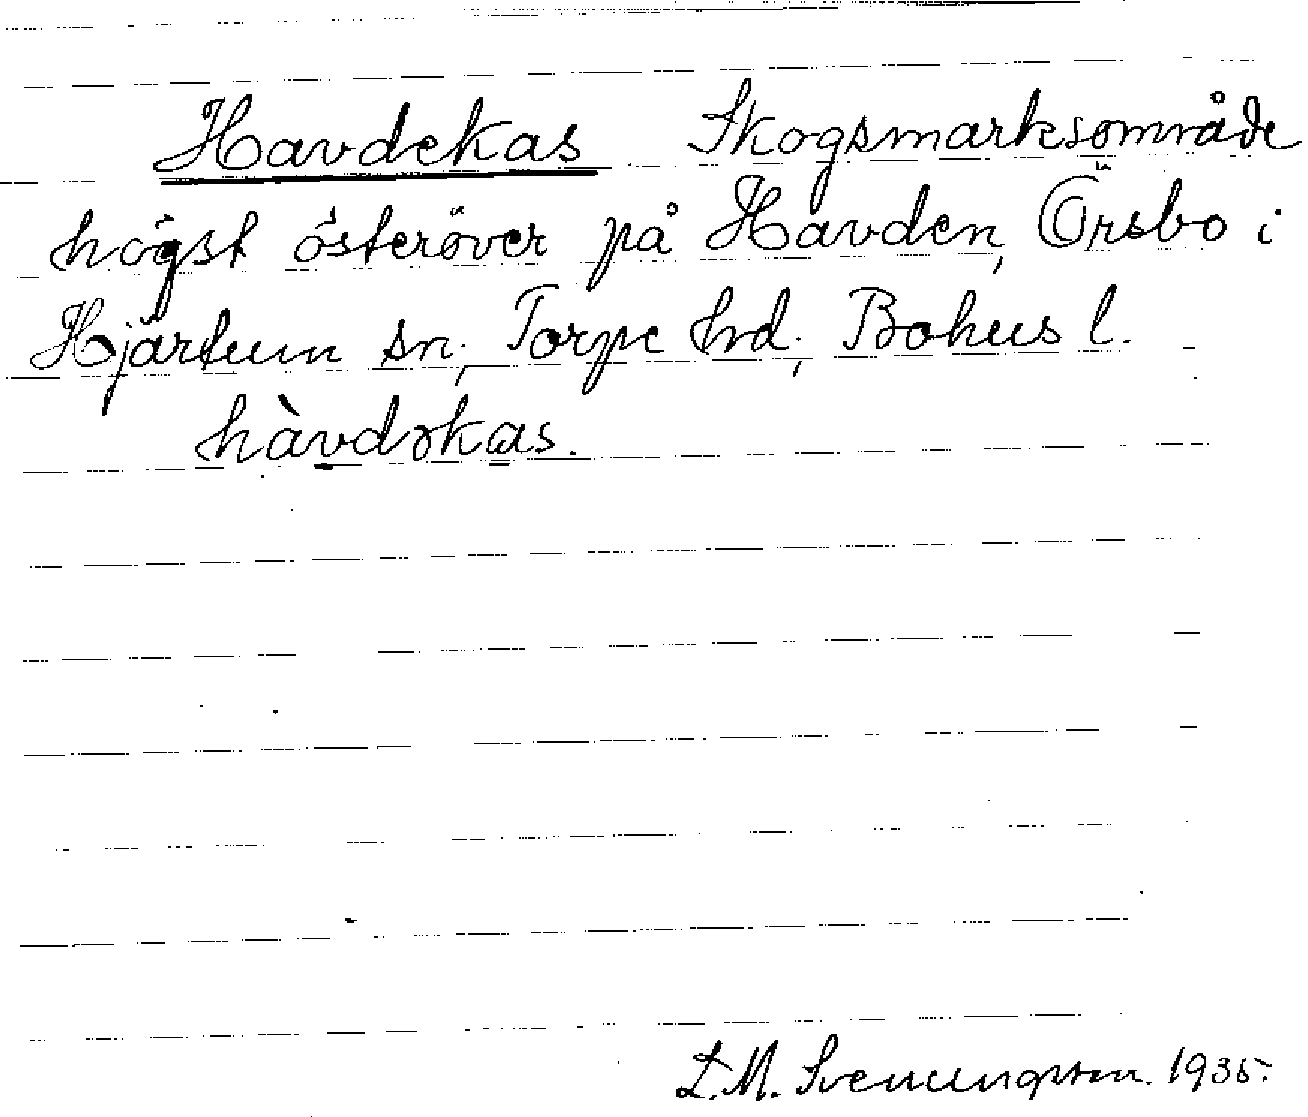 Havdekas Skogsmarksområde
högst österöver på Havden, Örsbo i
Hjärtum sn; Torpe hd; Bohus l.
hàvdəkas.
L.M. Svenungsson. 1935.